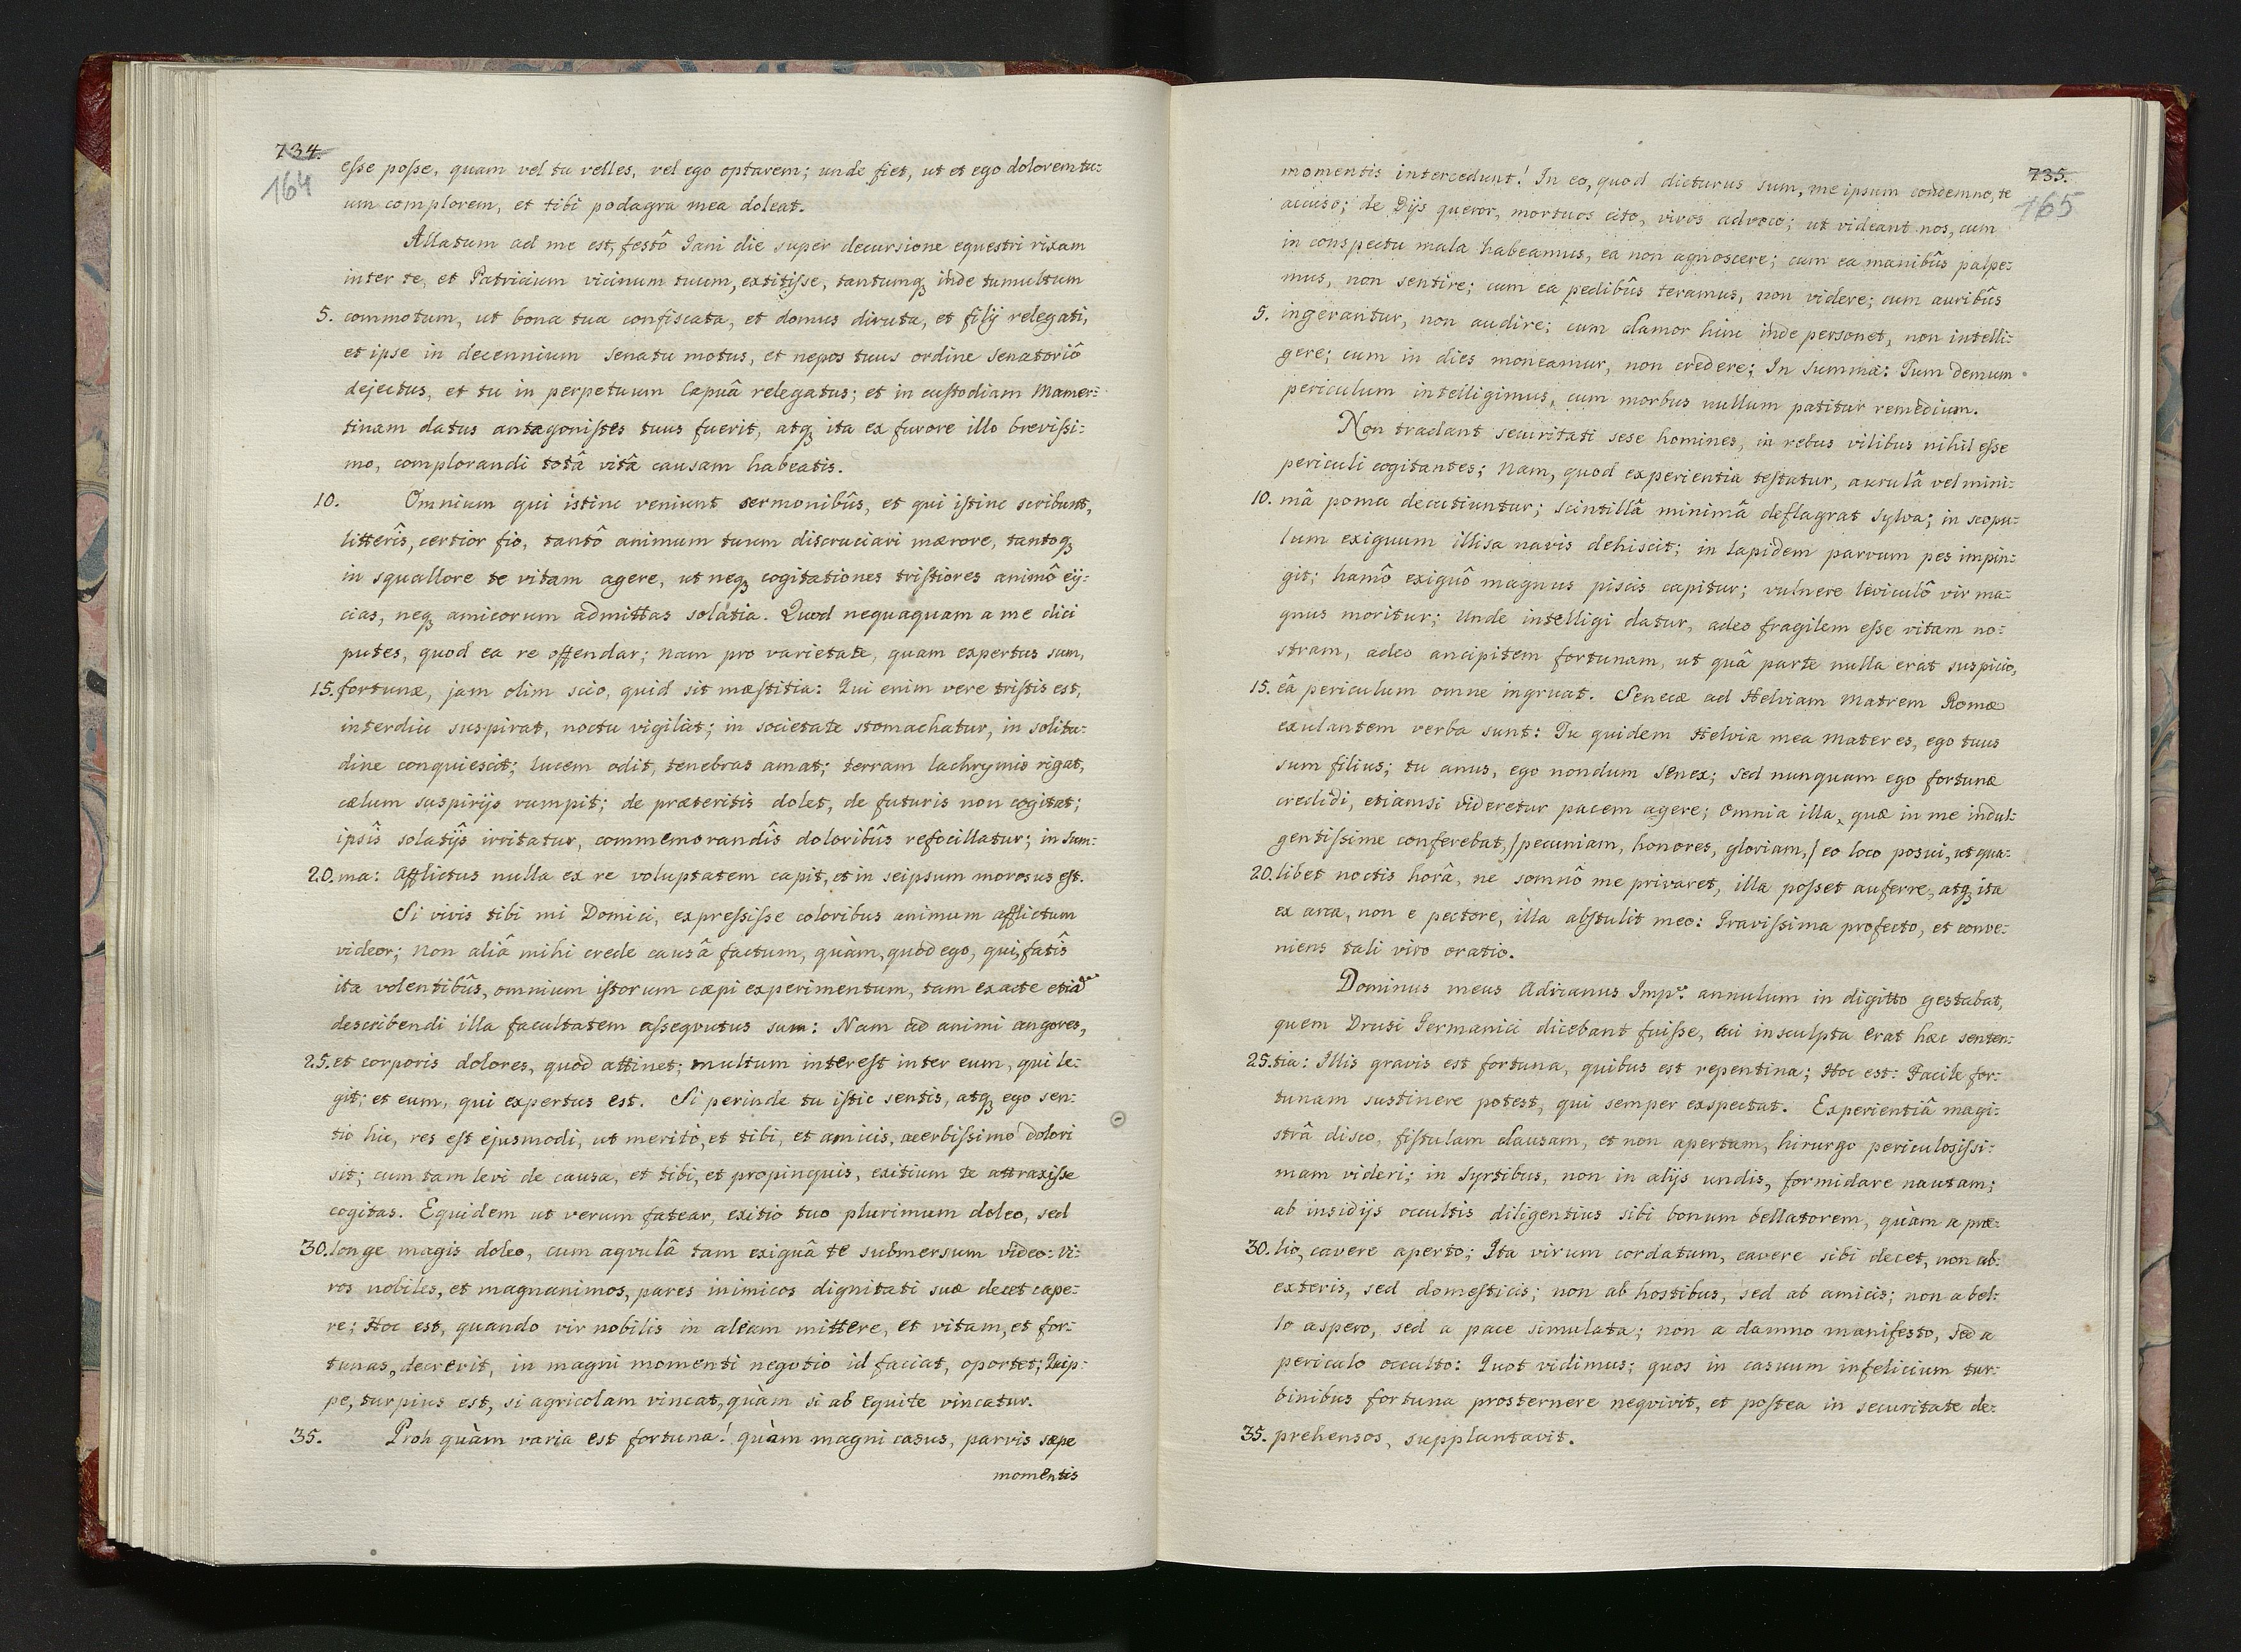 734.
164
esse posse, quam vel tu velles, vel ego optarem; unde fiet, ut et ego dolorem tu:
um complorem, et tibi podagra mea doleat.
Allatum ad me est, festô Jani die super decursione equestri rixam
inter te, et Patricium vicinum tuum, extitisse, tantumq3 inde tumultum
5. commotum, ut bona tua confiscata, et domus diruta, et filij relegati,
et ipse in decennium senatu motus, et nepos tuus ordine senatoriô
dejectus, et tu in perpetuum Capuâ relegatus; et in custodiam Mamer:
tinam datus antagonistes tuus fuerit, atq3 ita ex furore illo brevissi:
mo, complorandi totâ vitâ causam habeatis.
10. Omnium qui istinc veniunt sermonibûs, et qui istinc scribunt,
litterîs, certior fio, tantô animum tuum discruciari mærore, tantoq3
in squallore te vitam agere, ut neq3 cogitationes tristiores animô eij:
cias, neq3 amicorum admittas solatia. Quod nequaquam a me dici
putes, quod ea re offendar; nam pro varietate, quam expertus sum,
15. fortunæ, jam olim scio, quid sit mæstitia: Qui enim vere tristis est,
interdiu suspirat, noctu vigilàt; in societate stomachatur, in solitu:
dine conquiescit; lucem odit, tenebras amat; terram lachrymis rigat,
cælum suspirijs rumpit; de præteritis dolet, de futuris non cogitat;
ipsîs solatijs irritatur, commemorandîs doloribûs refocillatur; in sum:
20. ma: afflictus nulla ex re voluptatem capit, et in seipsum morosus est.
Si vivis tibi mi Domici, expressisse coloribus animum afflictum
videor; non aliâ mihi crede causâ factum, quàm, quod ego, qui, fatîs
ita volentibûs, omnium istorum cæpi experimentum, tam exacte etiam
describendi illa facultatem asseqvutus sum: Nam ad animi angores,
25. et corporis dolores, quod attinet; multum interest inter eum, qui le:
git; et eum, qui expertus est. Si perinde tu istic sentis, atq3 ego sen:
tio hic, res est ejusmodi, ut meritò, et tibi, et amicis, acerbissimo dolori
sit; cum tam levi de causa, et tibi, et propinquis, exitium te attraxisse
cogitas. Equidem ut verum fatear, exitio tuo plurimum doleo, sed
30. longe magis doleo, cum aqvulâ tam exiguâ te submersum video: Vi:
ros nobiles, et magnanimos, pares inimicos dignitati suæ decet cape:
re; Hoc est, quando vir nobilis in aleam mittere, et vitam, et for:
tunas, decrevit, in magni momenti negotio id faciat, oportet; Quip:
pe, turpius est, si agricolam vincat, quàm si ab equite vincatur.
35. Proh quàm varia est fortuna! quàm magni casus, parvis sæpe
momentis
735.
165
momentis intercedunt! In eo, quod dicturus sum, me ipsum condemno, te
accuso; de Dijs queror, mortuos cito, vivos advoco; ut videant nos, cum
in conspectu mala habeamus, ea non agnoscere; cum ea manibûs palpe:
mus, non sentire; cum ea pedibûs teramus, non videre; cum auribûs
5. ingerantur, non audire; cum clamor hinc inde personet, non intelli:
gere; cum in dies moneamur, non credere; In summa: Tum demum
periculum intelligimus, cum morbus nullum patitur remedium.
Non tradant securitati sese homines, in rebus vilibus nihil esse
periculi cogitantes; Nam, quod experientia testatur, aurulâ vel mini:
10. mâ poma decutiuntur; scintillâ minimâ deflagrat sylva; in scopu:
lum exiguum illisa navis dehiscit; in lapidem parvum pes impin:
git; hamô exiguô magnus piscis capitur; vulnere leviculô vir ma:
gnus moritur; Unde intelligi datur, adeo fragilem esse vitam no:
stram, adeo ancipitem fortunam, ut quâ parte nulla erat suspicio,
15. eâ periculum omne ingruat. Senecæ ad Helviam Matrem Romæ
exulantem verba sunt: Tu quidem Helvia mea Mater es, ego tuus
sum filius; tu anus, ego nondum senex; sed nunquam ego fortunæ
credidi, etiamsi videretur pacem agere; Omnia illa, quæ in me indul:
gentissime conferebat, /pecuniam, honores, gloriam,/ eo loco posui, ut qua:
20. libet noctis horâ, ne somnô me privaret, illa posset auferre, atq3 ita
ex arca, non e pectore, illa abstulit meo: Gravissima profecto, et conve:
niens tali viro oratio.
Dominus meus Adrianus Impr. annulum in digitto gestabat,
quem Drusi Germanici dicebant fuisse, cui insculpta erat hæc senten:
25. tia: Illis gravis est fortuna, quibus est repentina; Hoc est: Facile for:
tunam sustinere potest, qui semper exspectat. Experientiâ magi:
strâ disco, fistulam clausam, et non apertam, hirurgo periculosissi:
mam videri; in Syrtibus, non in alijs undis, formidare nautam;
ab insidijs occultis diligentius sibi bonum bellatorem, quàm a præ:
30. lio, cavere aperto; Ita virum cordatum, cavere sibi decet, non ab
exteris, sed domesticis; non ab hostibus, sed ab amicis; non a bel:
lo aspero, sed a pace simulata; non a damno manifesto, sed a
periculo occulto: Quot vidimus; quos in casuum infelicium tur:
binibus fortuna prosternere neqvivit, et postea in securitate de:
35. prehensos, supplantavit.